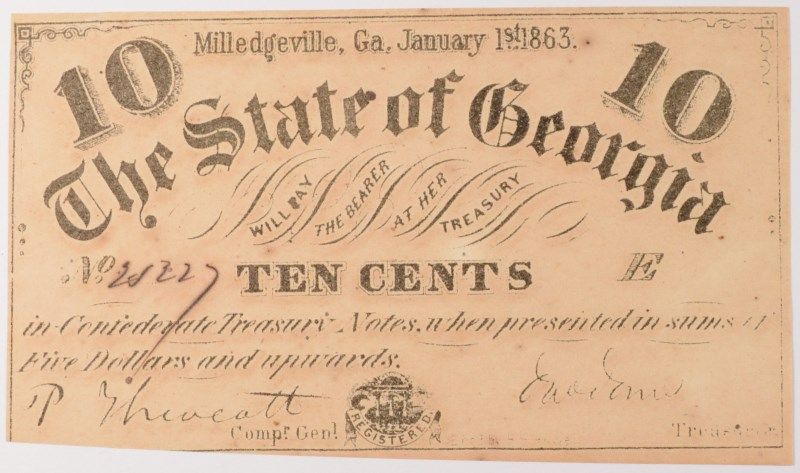 Milledgeville, Ga. January 1st. 1863.
10 10
The State of Georgia
WILL PAY THE BEARER AT HER TREASURY
No TEN CENTS E
in Confederate Treasury Notes, when presented in sums of
Five Dollars and upwards.
Compr. Genl. REGISTERED Treasurer